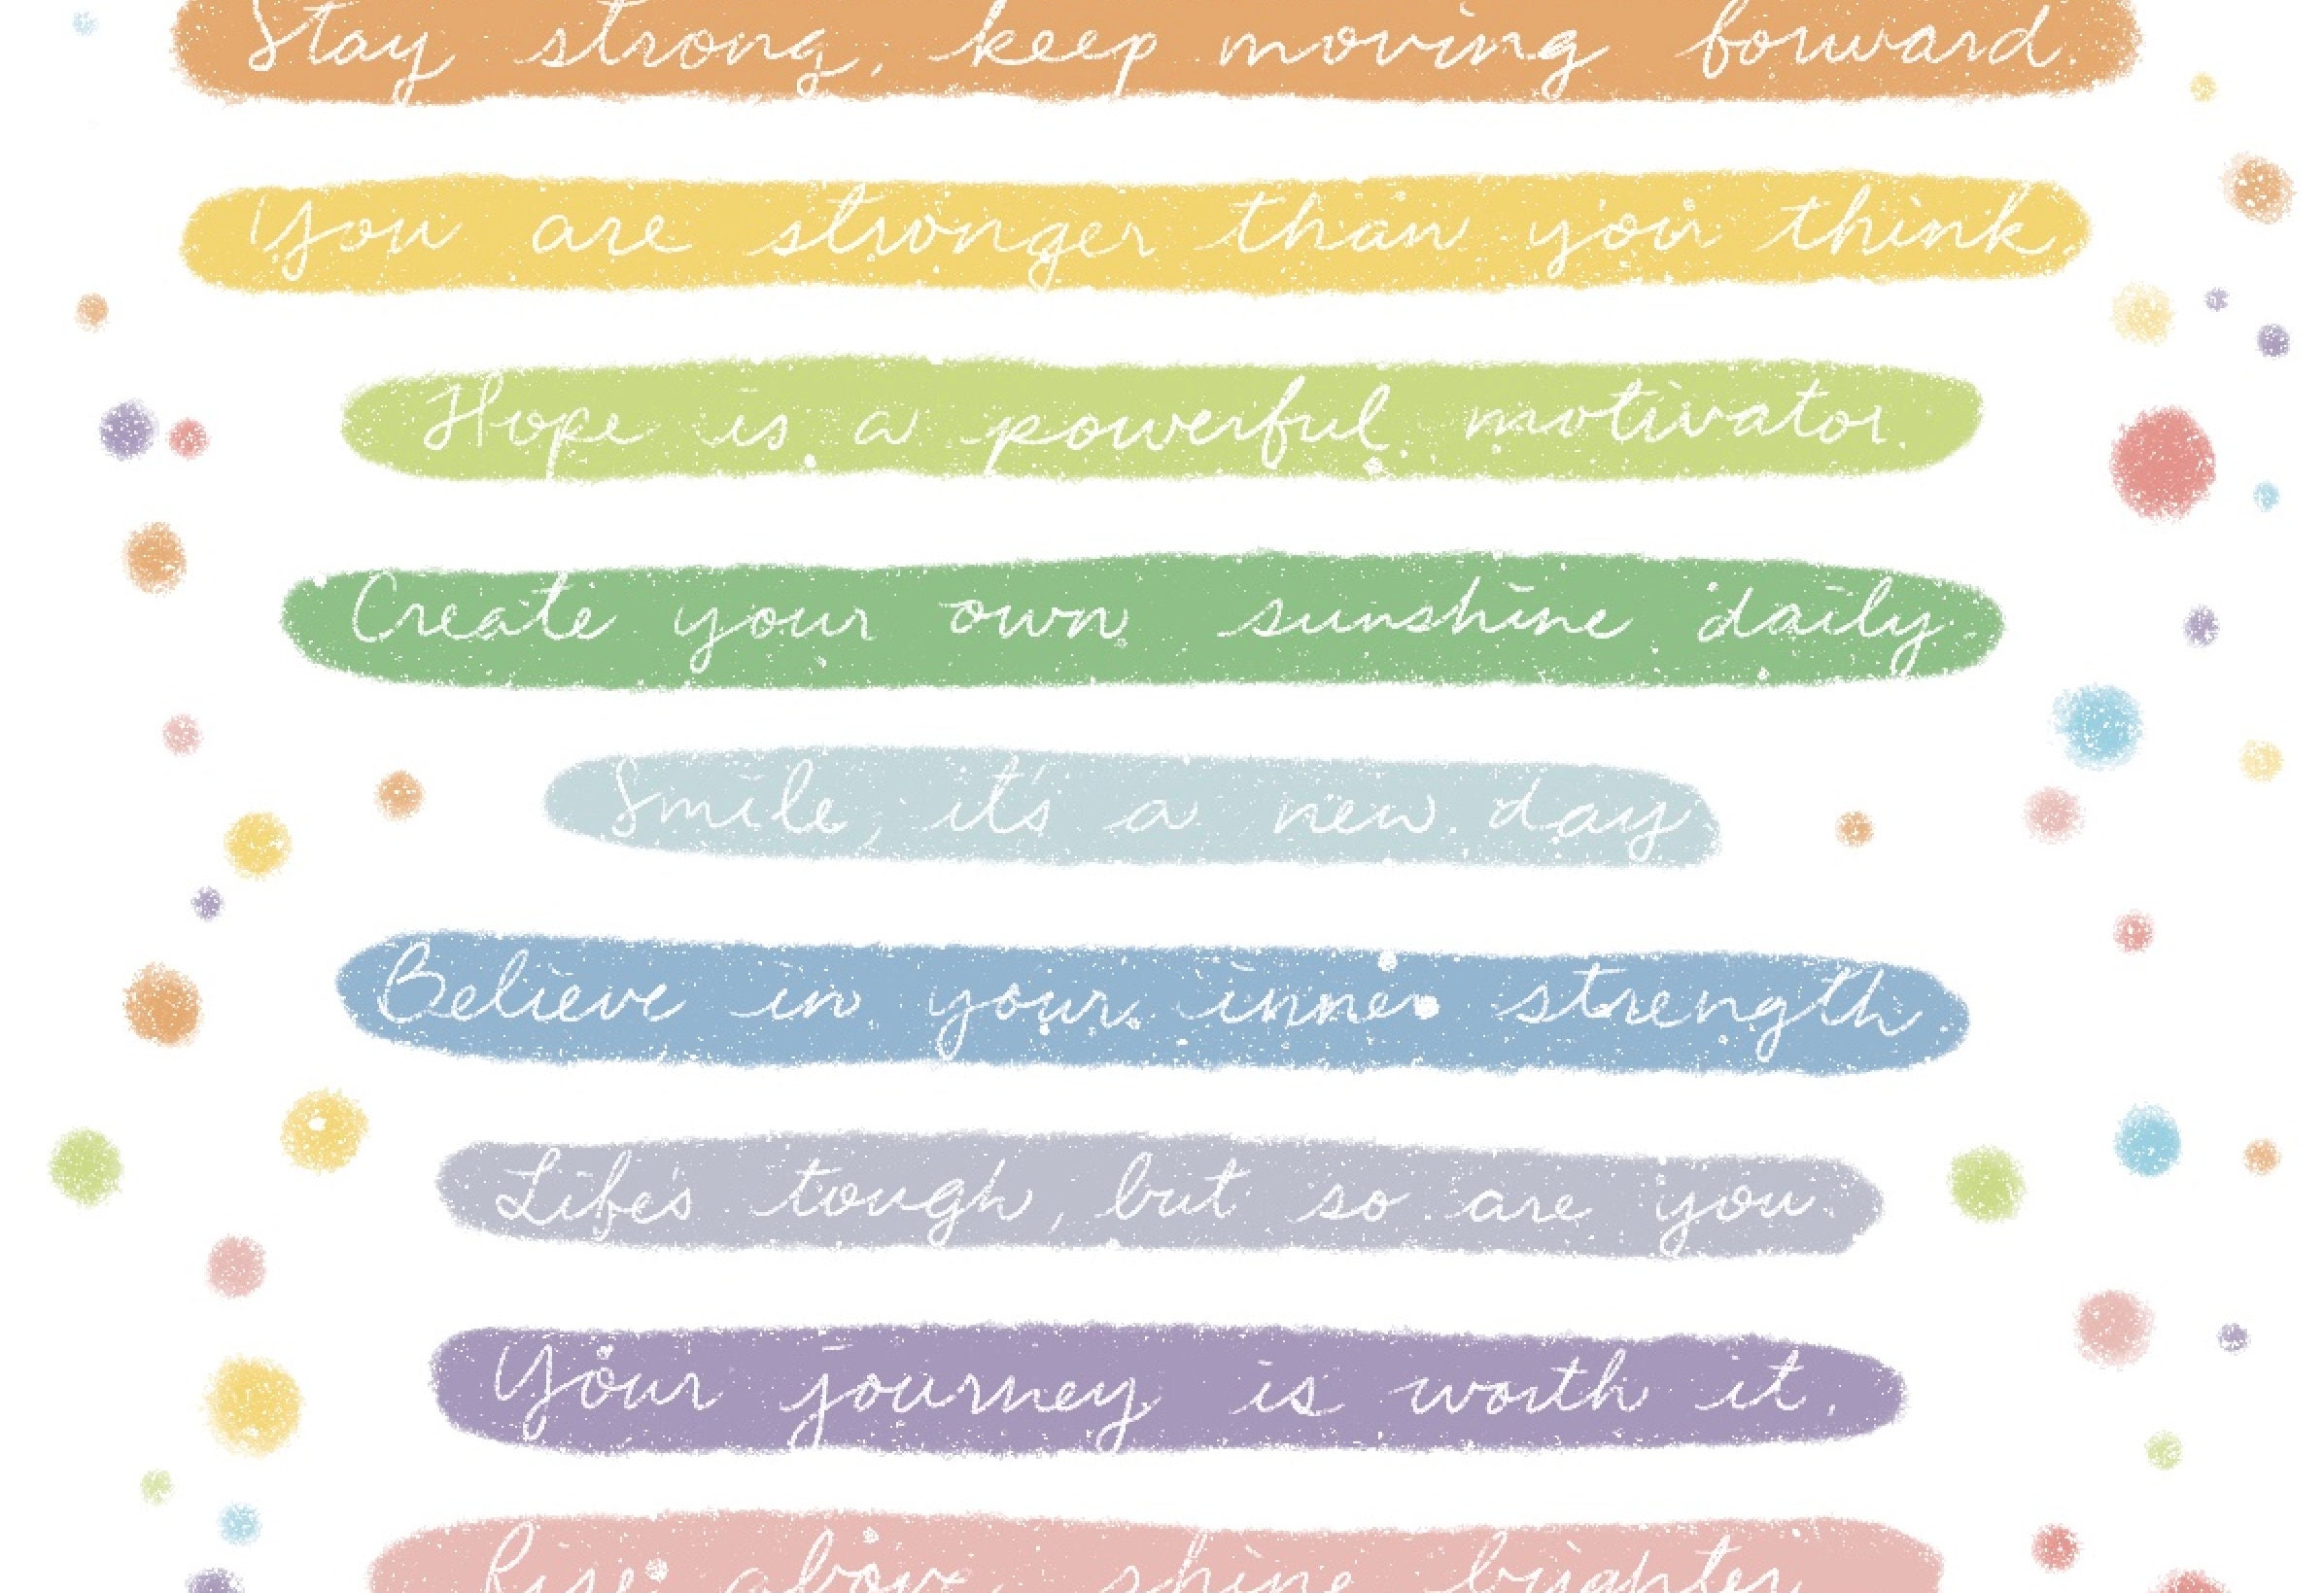 Stay strong, keep moving forward.
You are stronger than you think.
Hope is a powerful motivator.
Create your own sunshine daily.
Smile, it's a new day.
Believe in your inner strength.
Life's tough, but so are you.
Your journey is worth it.
Rise above, shine brighter.